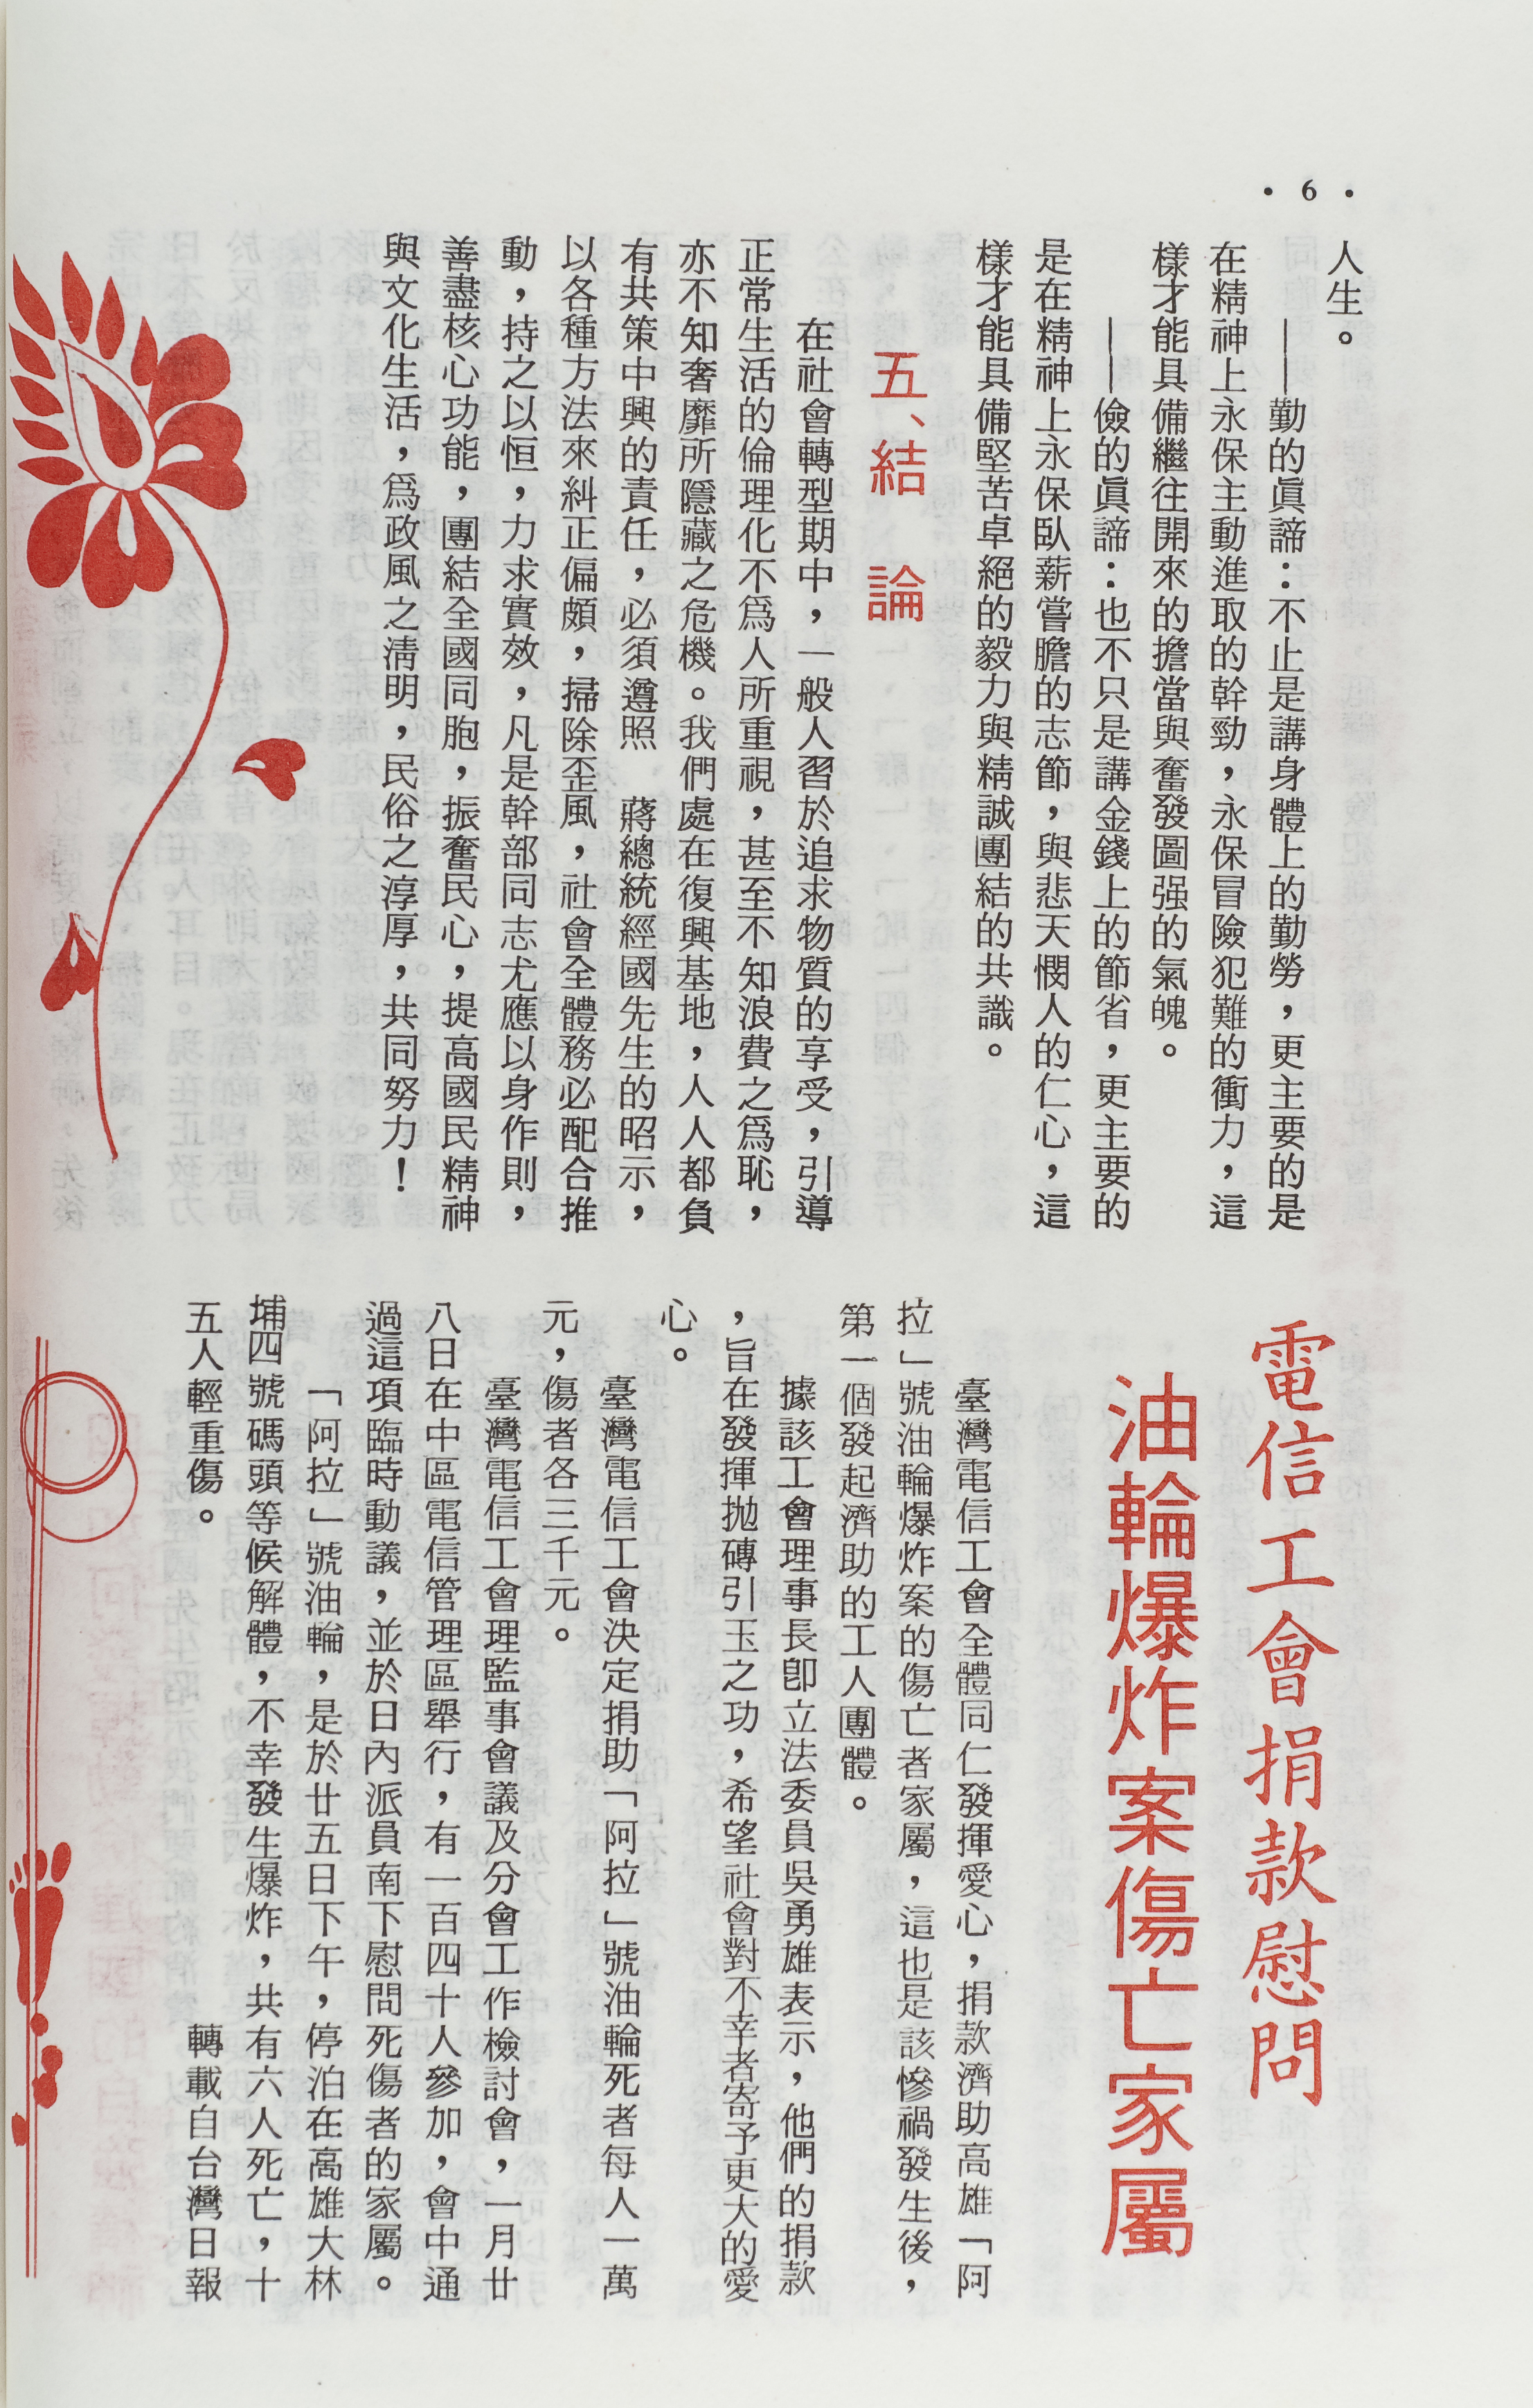 • 6 •
人生。
——勤的眞諦：不止是講身體上的勤勞，更主要的是
在精神上永保主動進取的幹勁，永保冒險犯難的衝力，這
樣才能具備繼往開來的擔當與奮發圖强的氣魄。
——儉的眞諦：也不只是講金錢上的節省，更主要的
是在精神上永保臥薪嘗膽的志節，與悲天憫人的仁心，這
樣才能具備堅苦卓絕的毅力與精誠團結的共識。
五、結　論
在社會轉型期中，一般人習於追求物質的享受，引導
正常生活的倫理化不爲人所重視，甚至不知浪費之爲恥，
亦不知奢靡所隱藏之危機。我們處在復興基地，人人都負
有共策中興的責任，必須遵照　蔣總統經國先生的昭示，
以各種方法來糾正偏頗，掃除歪風，社會全體務必配合推
動，持之以恒，力求實效，凡是幹部同志尤應以身作則，
善盡核心功能，團結全國同胞，振奮民心，提高國民精神
與文化生活，爲政風之淸明，民俗之淳厚，共同努力！
電信工會捐款慰問
油輪爆炸案傷亡家屬
臺灣電信工會全體同仁發揮愛心，捐款濟助高雄「阿
拉」號油輪爆炸案的傷亡者家屬，這也是該慘禍發生後，
第一個發起濟助的工人團體。
據該工會理事長卽立法委員吳勇雄表示，他們的捐款
，旨在發揮拋磚引玉之功，希望社會對不幸者寄予更大的愛
心。
臺灣電信工會決定捐助「阿拉」號油輪死者每人一萬
元，傷者各三千元。
臺灣電信工會理監事會議及分會工作檢討會，一月廿
八日在中區電信管理區舉行，有一百四十人參加，會中通
過這項臨時動議，並於日內派員南下慰問死傷者的家屬。
「阿拉」號油輪，是於廿五日下午，停泊在高雄大林
埔四號碼頭等候解體，不幸發生爆炸，共有六人死亡，十
五人輕重傷。
轉載自台灣日報